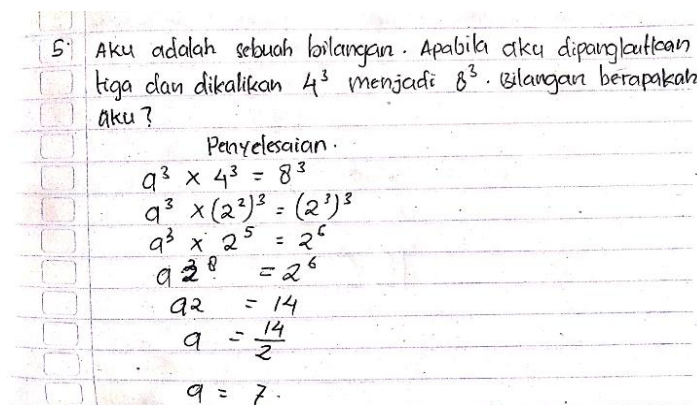 5. Aku adalah sebuah bilangan. Apabila aku dipangkatkan
tiga dan dikalikan 4³ menjadi 8³. Bilangan berapakah
aku?
Penyelesaian.
a³ × 4³ = 8³
a³ × (2²)³ = (2³)³
a³ × 2⁵ = 2⁶
a 2⁸ = 2⁶
a2 = 14
a = 14/2
a = 7.